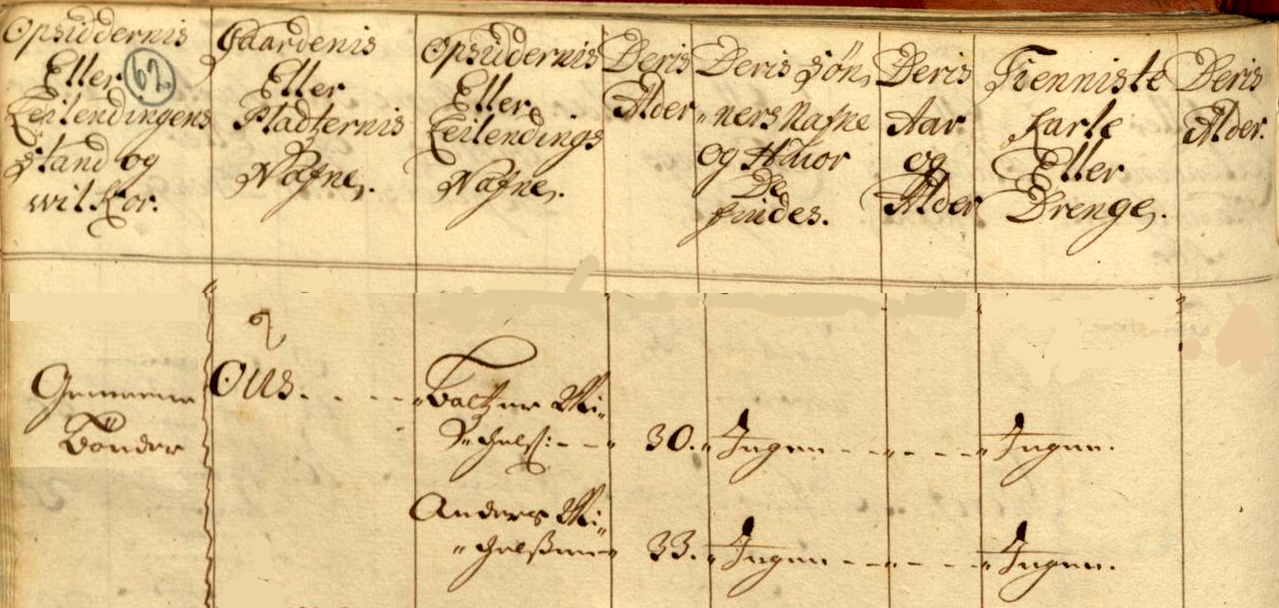 Opsiddernis
Eller
Leilendingens
Stand og
wilkor.
62
Gaardenis
Eller
Pladternis
Nafne.
Opsidernis
Eller
Leilendings
Nafne.
Deris
Alder
Deris Søn,
"ners Nafne
og Huor
De
findes.
Deris
Aar
og
Alder
Tienniste
Karle
Eller
Drenge.
Deris
Alder.
2
Gemeene
Bønder
Ous. - - - -
"Baltzer Mi"
"chelß: - - " 30. "Ingen - - " - - - "Ingen.
Anders Mi"
"chelßen - " 33. "Ingen - - " - - - "Ingen.